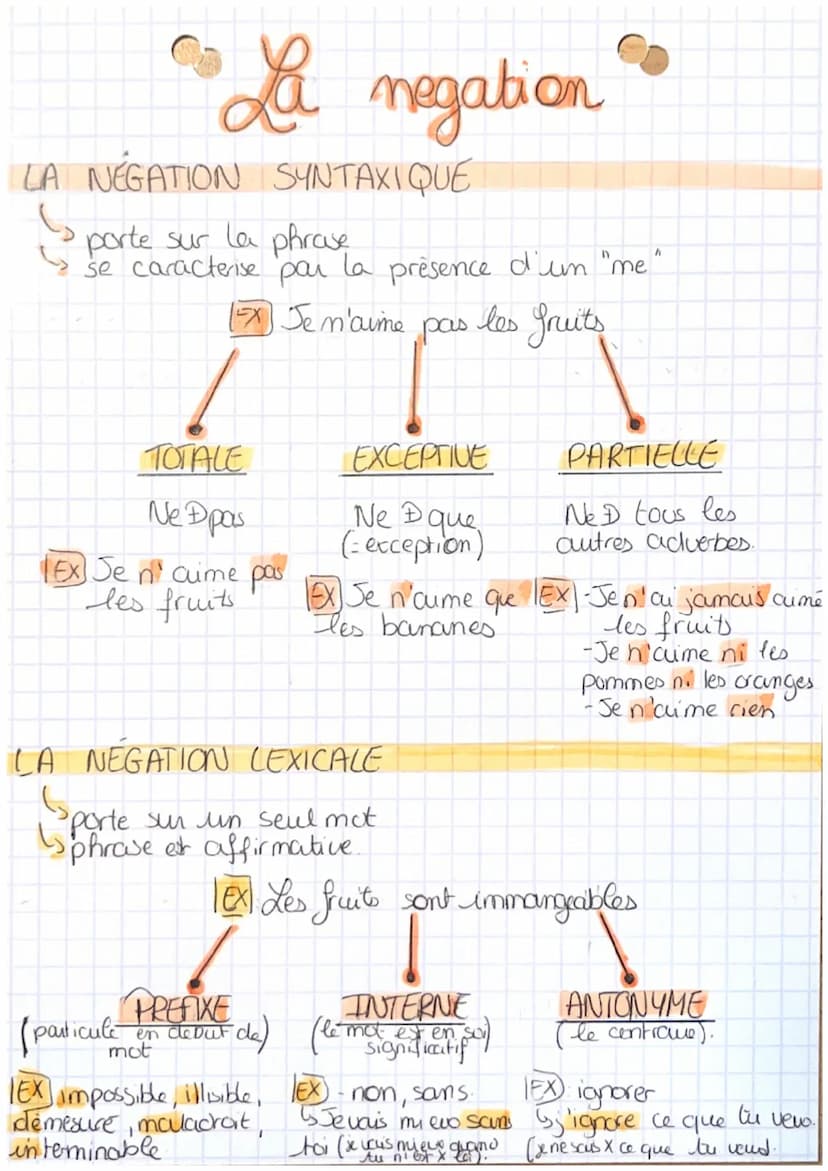 La negation
LA NÉGATION SYNTAXIQUE
porte sur la phrase
se caracterise par la présence d'un "me"
EX Je n'aime pas les fruits
TOTALE
Ne Đ pas
EX Je n'aime pas
les fruits
EXCEPTIVE
Ne Đ que
(= exception)
EX Je n'aime que
les bananes
PARTIELLE
Ne Đ tous les
autres adverbes.
EX -Je n'ai jamais aimé
les fruits
-Je n'aime ni les
pommes ni les oranges
-Je n'aime rien
LA NÉGATION LEXICALE
porte sur un seul mot
phrase est affirmative.
EX Les fruits sont immangeables
PREFIXE
(particule en debut de)
mot
EX impossible, illisible,
démesuré, maladroit,
interminable
INTERNE
(le mot est en soi)
significatif
EX - non, sans.
Je vais mieux sans
toi (je vais mieux quand
tu n'est x là).
ANTONYME
(le contraire).
EX ignorer
j'ignore ce que tu veux.
(je ne sais x ce que tu veux).